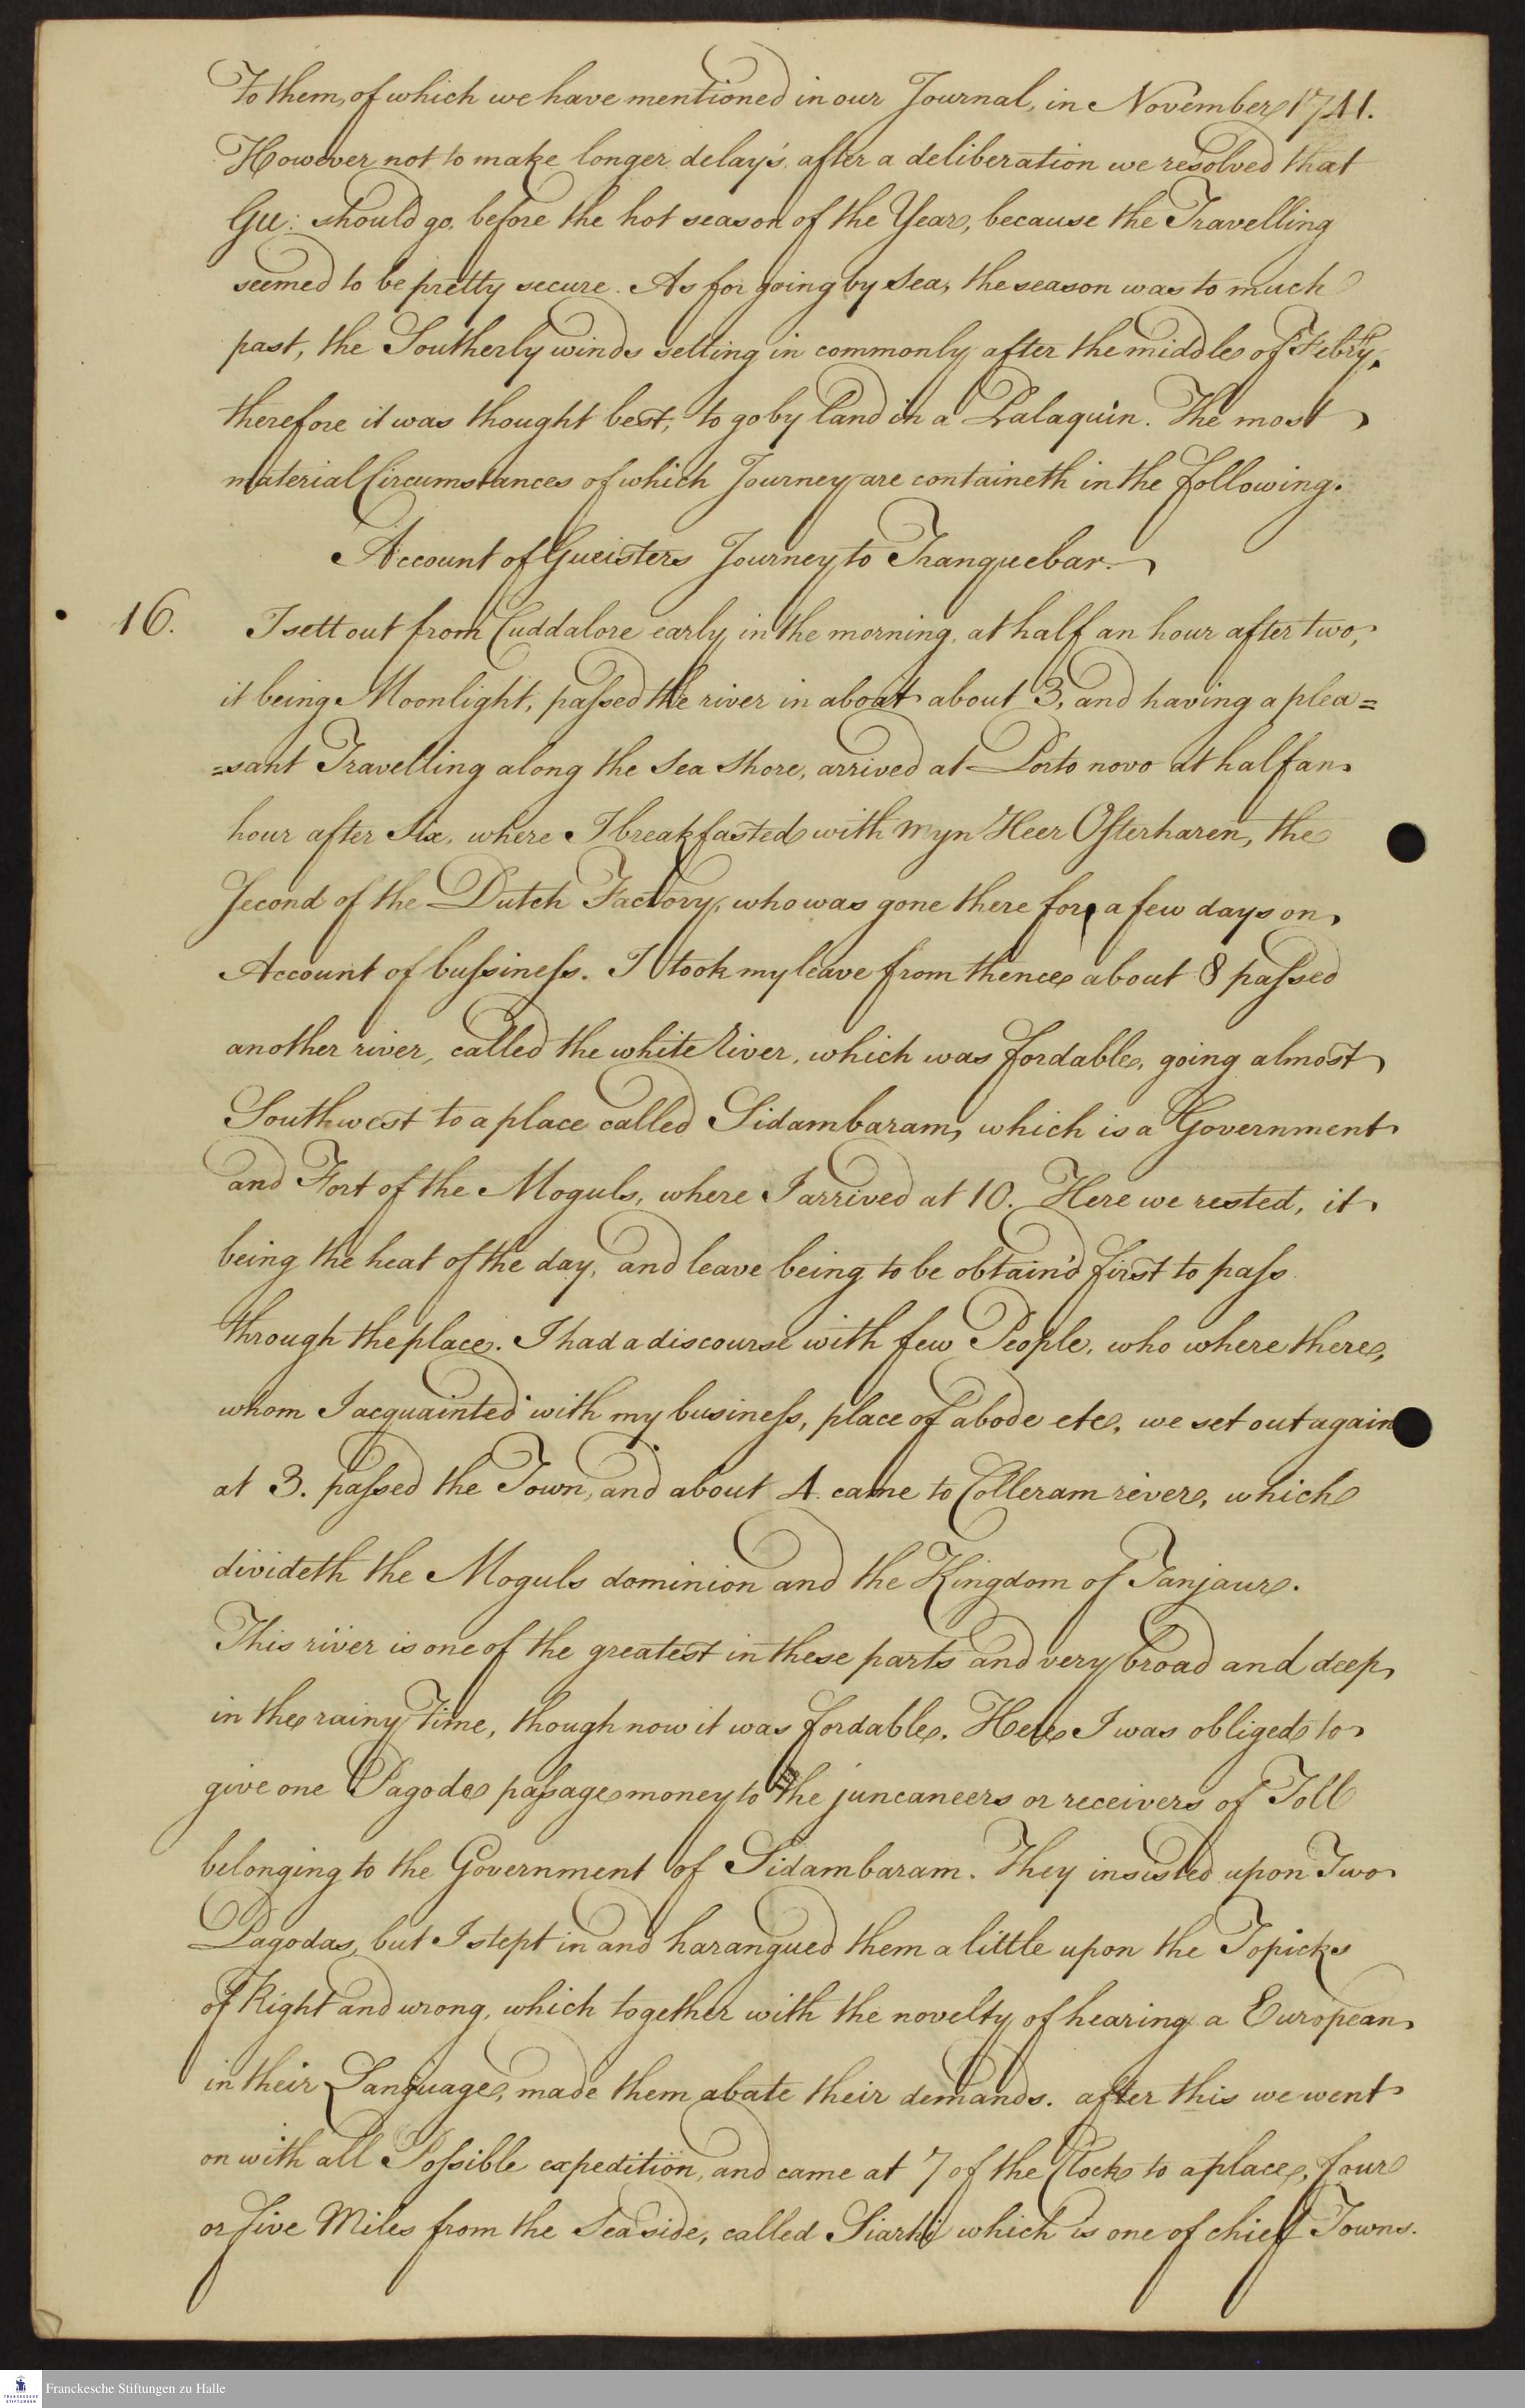 To them, of which we have mentioned in our Journal, in November 1741.
However not to make longer delay's, after a deliberation we resolved that
Gu: should go, before the hot season of the Year, because the Travelling
seemed to be pretty secure. As for going by Sea, the season was to much
past, the Southerly winds setting in commonly after the middle of Febry.
therefore it was thought best, to go by land in a Palaquin. The most
material Circumstances of which Journey are containeth in the following.
Account of Gueisters Journey to Tranquebar.
16. I sett out from Cuddalore early in the morning, at half an hour after two,
it being Moonlight, passed the river in aboat about 3, and having a plea=
=sant Travelling along the Sea Shore, arrived at Porto novo at half an
hour after Six, where I breakfasted with Myn Heer Osterharen, the
Second of the Dutch Factory, who was gone there for a few days on
Account of bussiness. I took my leave from thence about 8 passed
another river, called the white River, which was fordable, going almost
Southwest to a place called Sidambaram, which is a Government
and Fort of the Moguls, where I arrived at 10. Here we rested, it
being the heat of the day, and leave being to be obtain'd first to pass
through the place. I had a discourse with few People, who where there,
whom I acquainted with my business, place of abode etc, we set out again
at 3. passed the Town, and about 4. came to Colleram river, which
divideth the Moguls dominion and the Kingdom of Tanjaur.
This river is one of the greatest in these parts and very broad and deep
in the rainy Time, though now it was fordable. Here I was obliged to
give one Pagode passage money to the juncaneers or receivers of Toll
belonging to the Government of Sidambaram. They insisted upon Two
Pagodas, but I stept in and harangued them a little upon the Topicks
of Right and wrong, which together with the novelty of hearing a European
in their Language, made them abate their demands. after this we went
on with all Possible expedition, and came at 7 of the Clock to a place, four
or five Miles from the Seaside, called Siarhi which is one of chief Towns.
Franckesche Stiftungen zu Halle